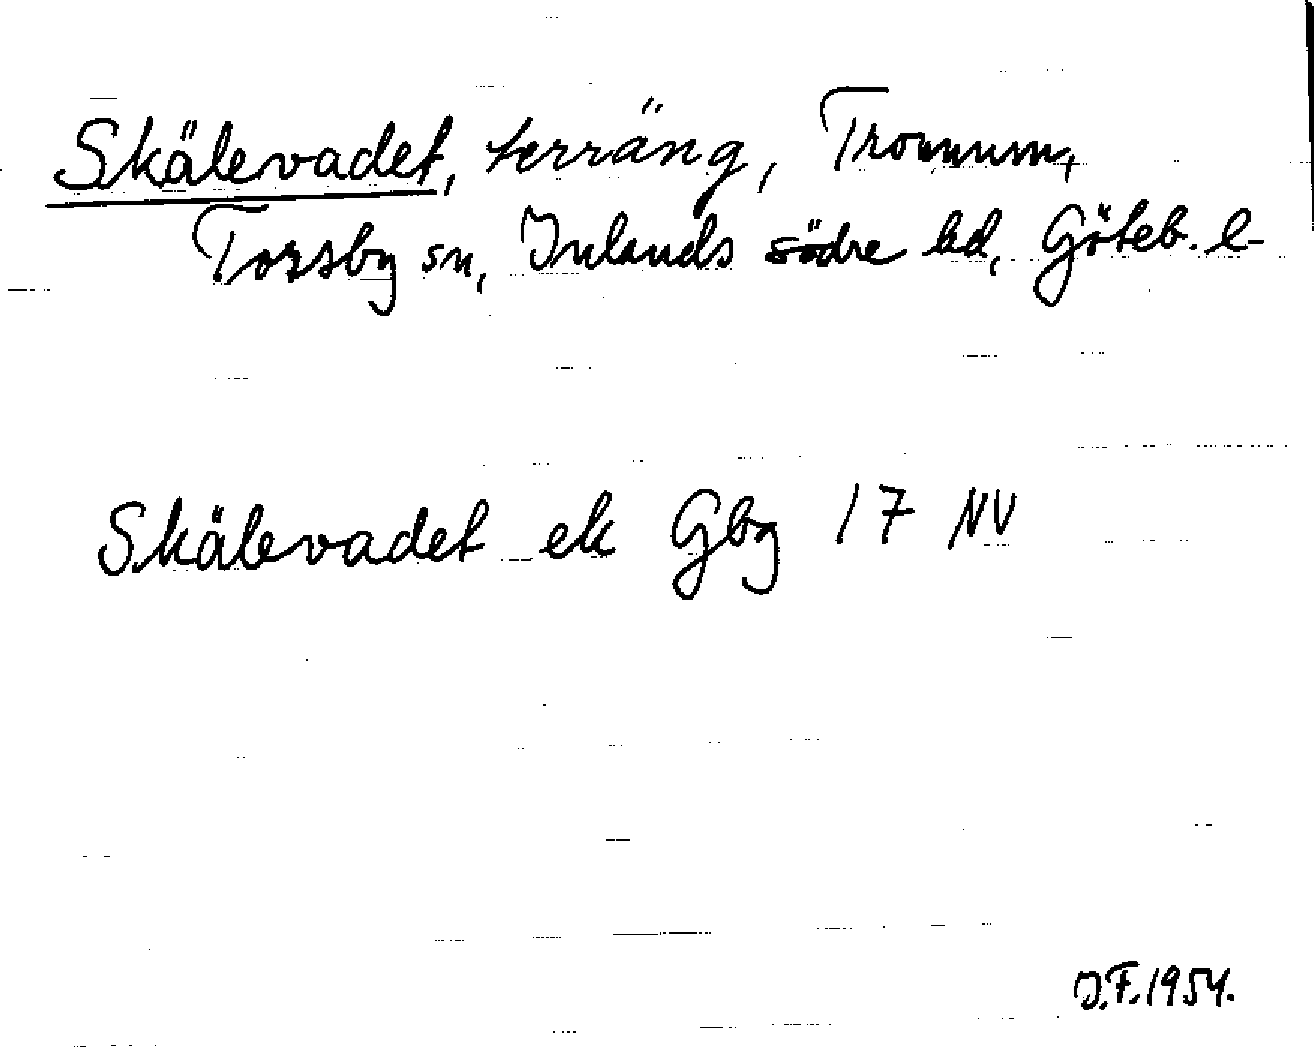 Skälevadet, terräng, Tronnum,
Torsby sn, Inlands södre hd, Göteb. l.
Skälevadet ek Gbg 17 NV
J.F. 1954.